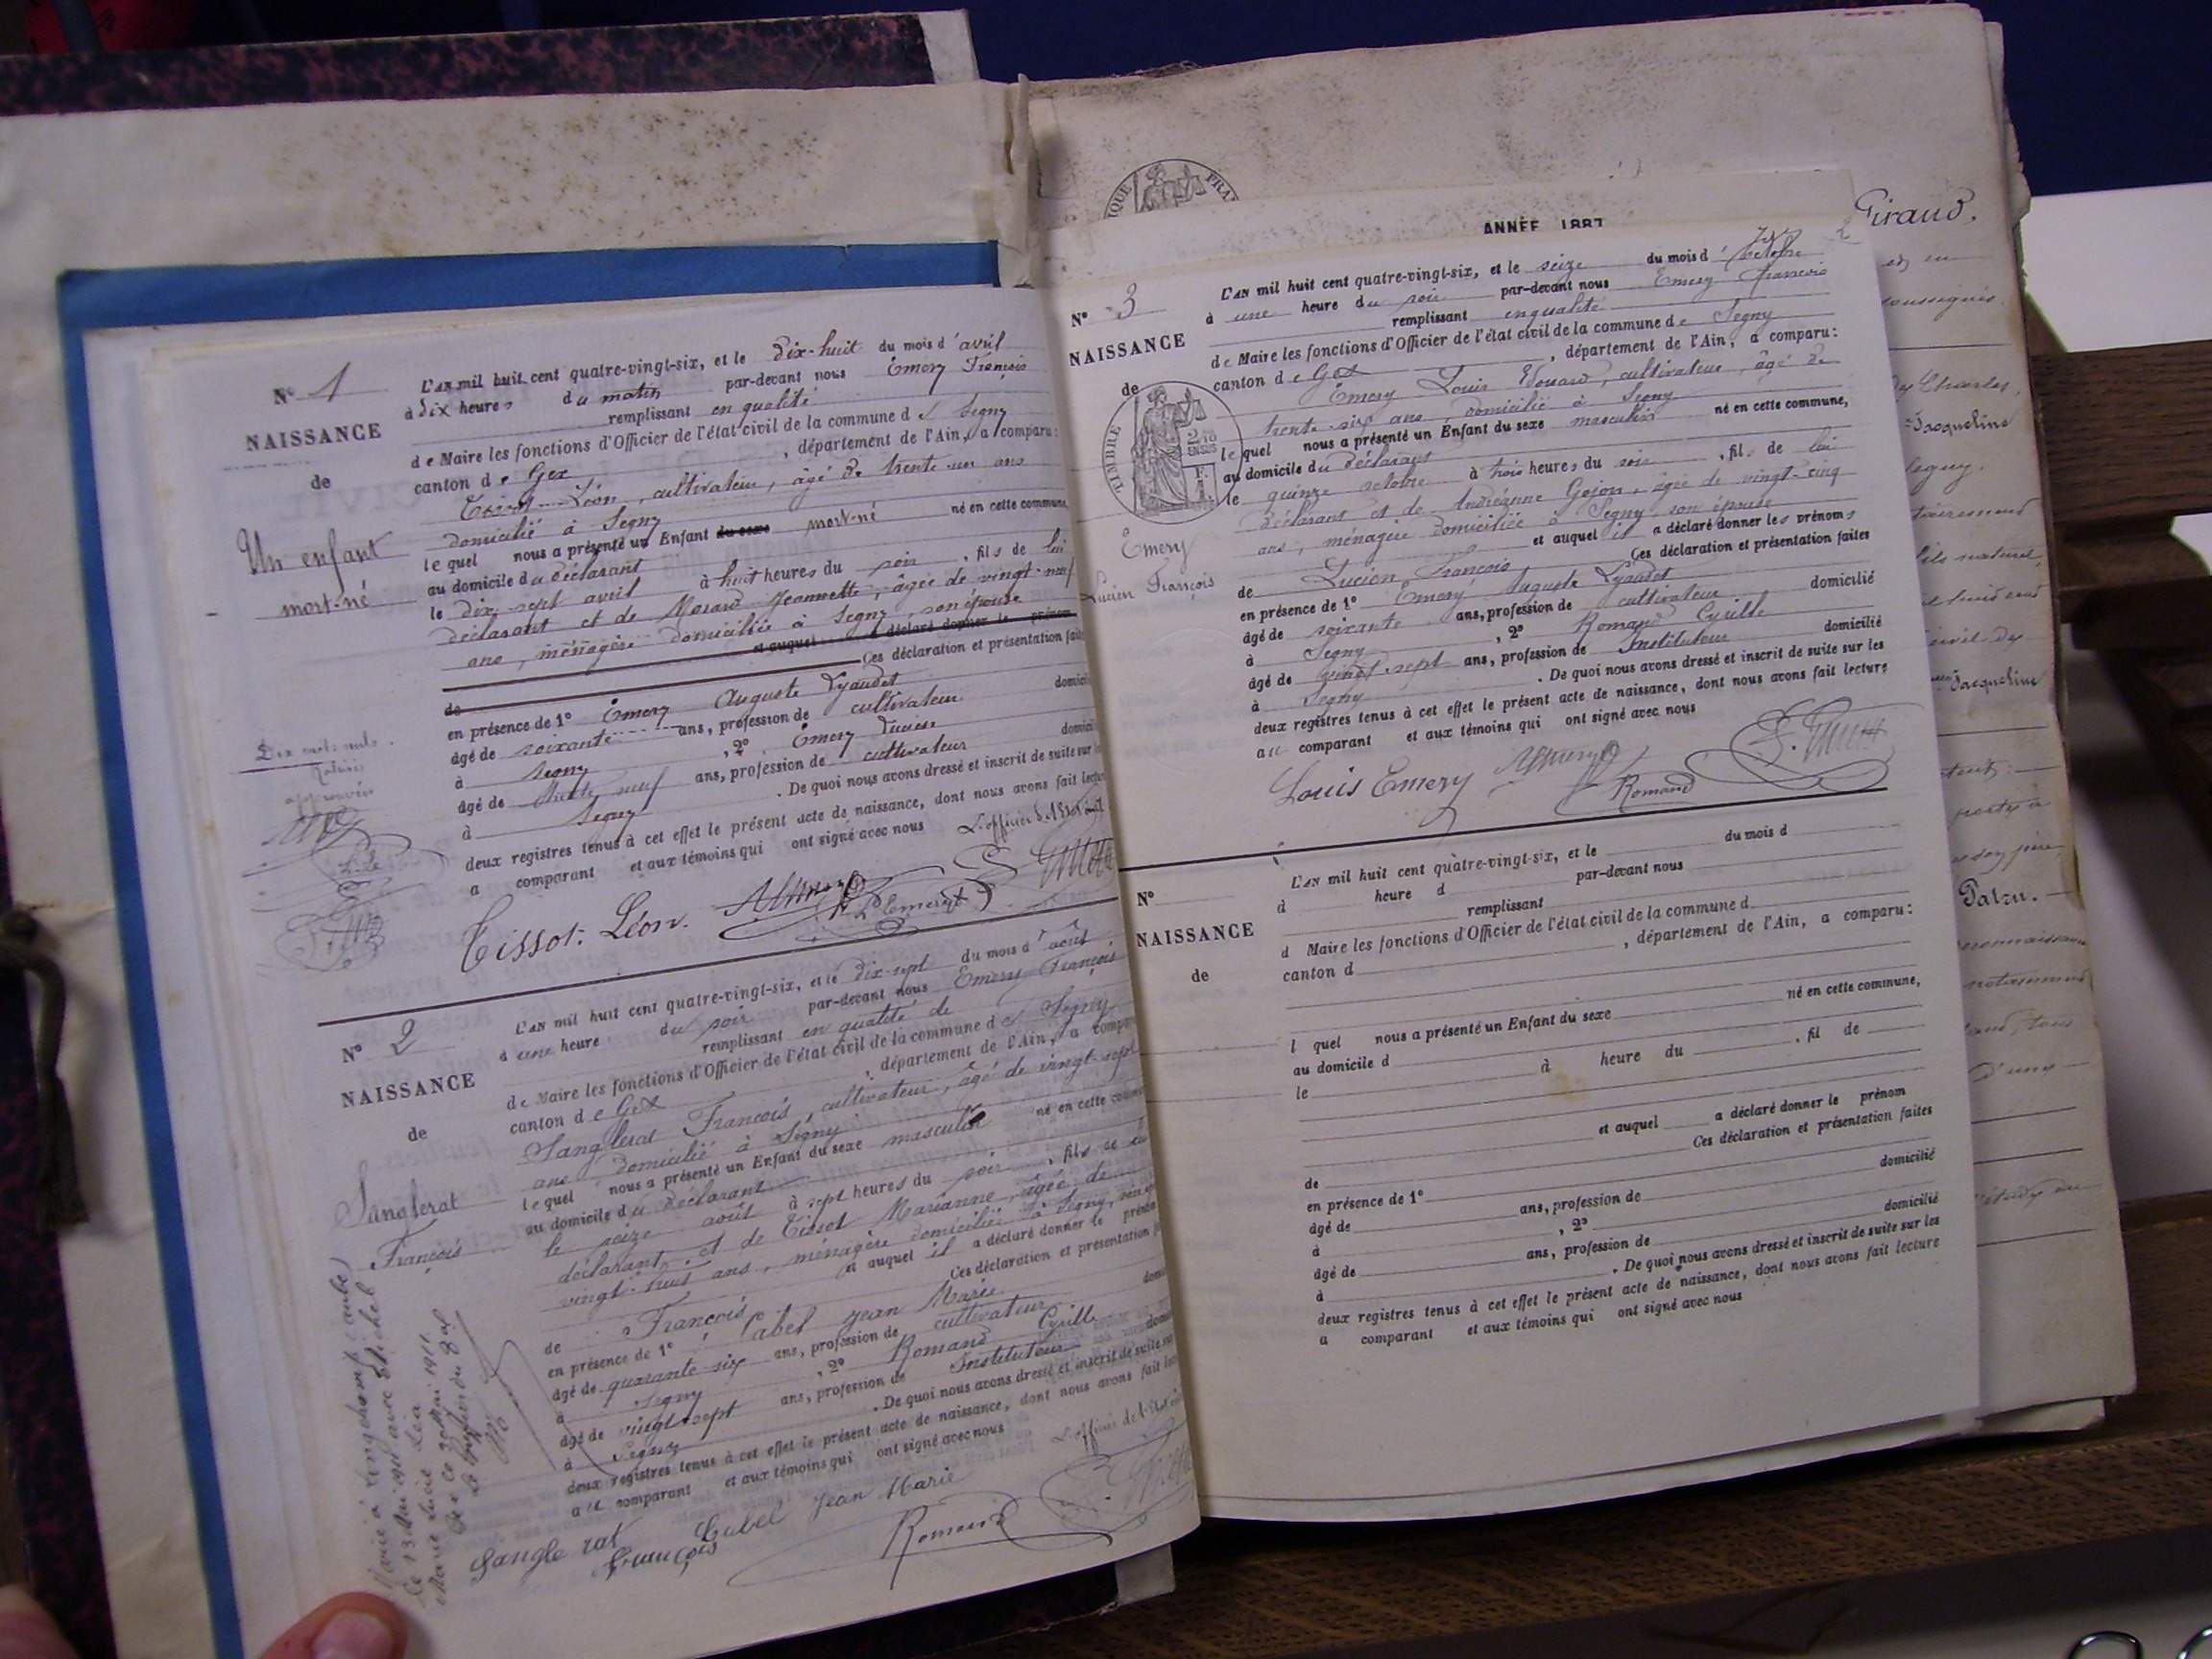 N° 1
NAISSANCE
de
Un enfant
mort-né
L'AN mil huit cent quatre-vingt-six, et le dix-huit du mois d'avril
à dix heures du matin par-devant nous Emery François
remplissant en qualité
de Maire les fonctions d'Officier de l'état civil de la commune de Segny
canton de Gex, département de l'Ain, a comparu:
Tissot Léon, cultivateur, âgé de trente-un ans
domicilié à Segny
lequel nous a présenté un Enfant du sexe mort-né né en cette commune,
au domicile du déclarant
le dix-sept avril à huit heures du soir, fils de lui
déclarant et de Morard Jeannette, âgée de vingt-neuf
ans, ménagère domiciliée à Segny, son épouse
et auquel a déclaré donner le prénom
de Ces déclaration et présentation fait
en présence de 1° Emery Auguste Lyaudet
âgé de soixante ans, profession de cultivateur domici
à Segny, 2° Emery Lucien
âgé de trente neuf ans, profession de cultivateur domici
à Segny. De quoi nous avons dressé et inscrit de suite sur l
deux registres tenus à cet effet le présent acte de naissance, dont nous avons fait lectu
a comparant et aux témoins qui ont signé avec nous
L'officier de l'Etat civil
Tissot Léon.
L. Emery
Dix mots nuls
approuvée
N° 2
NAISSANCE
de
Sanglerat
François
L'AN mil huit cent quatre-vingt-six, et le dix-sept du mois d'août
à une heure du soir par-devant nous Emery François
remplissant en qualité de
de Maire les fonctions d'Officier de l'état civil de la commune de Segny
canton de Gex, département de l'Ain, a compar
Sanglerat François, cultivateur, âgé de vingt-sept
ans domicilié à Segny
lequel nous a présenté un Enfant du sexe masculin né en cette comm
au domicile du déclarant à sept heures du soir, fils de
le seize août
déclarant et de Tissot Marianne, âgée de
vingt-huit ans, ménagère domiciliée à Segny, son
et auquel il a déclaré donner le prénom
de François Ces déclaration et présentation
en présence de 1° Cabel Jean Marie
âgé de quarante-six ans, profession de cultivateur dom
à Segny, 2° Romand Cyrille
âgé de vingt-sept ans, profession de Instituteur
à Segny. De quoi nous avons dressé et inscrit de suite su
deux registres tenus à cet effet le présent acte de naissance, dont nous avons fait lec
au comparant et aux témoins qui ont signé avec nous
L'officier de l'Etat
Sanglerat François
Cabel Jean Marie
Romand
le 13 Mai 1911 avec Michel
Marie Lucie Léa
Gex ce 20 Mai 1911
Le Greffier du
ANNÉE 1887
N° 3
NAISSANCE
de
TIMBRE
Emery
Lucien François
L'AN mil huit cent quatre-vingt-six, et le seize du mois d'octobre
à une heure du soir par-devant nous Emery François
remplissant en qualité
de Maire les fonctions d'Officier de l'état civil de la commune de Segny
canton de Gex, département de l'Ain, a comparu:
Emery Louis Edouard, cultivateur, âgé de
trente-six ans, domicilié à Segny
lequel nous a présenté un Enfant du sexe masculin né en cette commune,
au domicile du déclarant
le quinze octobre à trois heures du soir, fils de lui
déclarant et de Andréanne Gojon, âgée de vingt-cinq
ans, ménagère domiciliée à Segny son épouse
et auquel il a déclaré donner les prénoms
de Lucien François Ces déclaration et présentation faites
en présence de 1° Emery Auguste Lyaudet
âgé de soixante ans, profession de cultivateur domicilié
à Segny, 2° Romand Cyrille
âgé de vingt-sept ans, profession de Instituteur domicilié
à Segny. De quoi nous avons dressé et inscrit de suite sur les
deux registres tenus à cet effet le présent acte de naissance, dont nous avons fait lecture
au comparant et aux témoins qui ont signé avec nous
Louis Emery
Romand
N°
NAISSANCE
de
L'AN mil huit cent quatre-vingt-six, et le du mois d
à heure d par-devant nous
remplissant
d Maire les fonctions d'Officier de l'état civil de la commune d
canton d, département de l'Ain, a comparu:
l quel nous a présenté un Enfant du sexe né en cette commune,
au domicile d
le à heure du, fil de
et auquel a déclaré donner le prénom
de Ces déclaration et présentation faites
en présence de 1°
âgé de ans, profession de domicilié
à, 2°
âgé de ans, profession de domicilié
à. De quoi nous avons dressé et inscrit de suite sur les
deux registres tenus à cet effet le présent acte de naissance, dont nous avons fait lecture
a comparant et aux témoins qui ont signé avec nous
Giraud.
soussignés
Charles,
Jacqueline
Segny.
fils naturel
civil de
Jacqueline
Patru.
reconnaissance
notamment
d'une